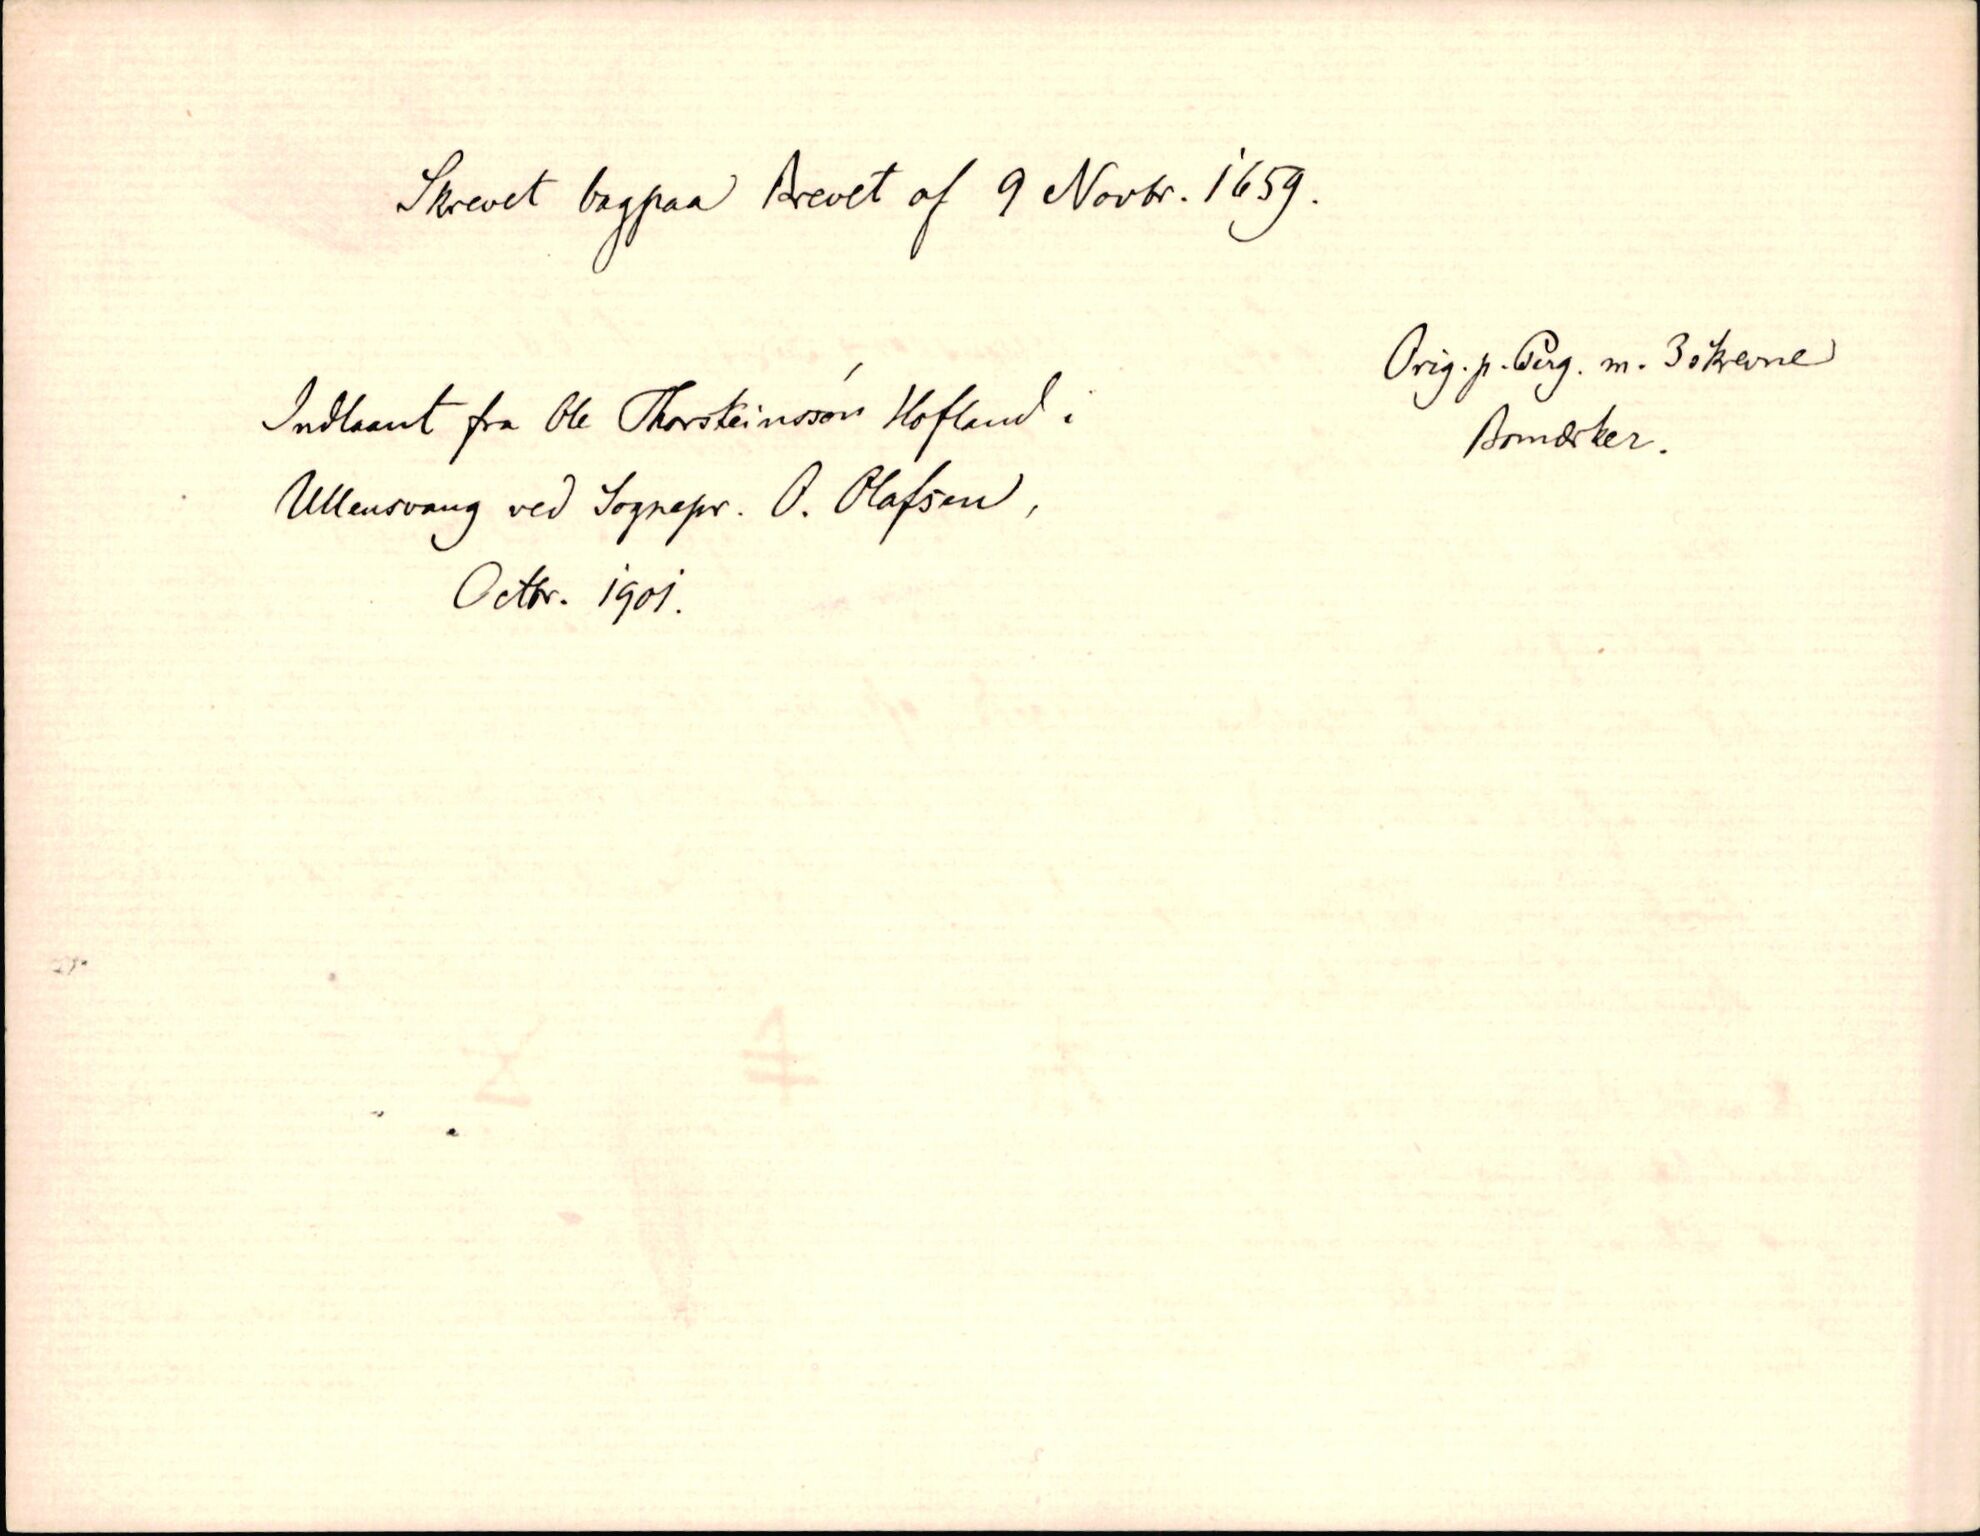 Skrevet bagpaa Brevet af 9 Novbr. 1659.
Orig. p. Perg. m. 3 skrevne
Bomærker.
Indlaant fra Ole Thorsteinssøn Hofland i
Ullensvang ved Sognepr. O. Olafsen,
Octbr. 1901.